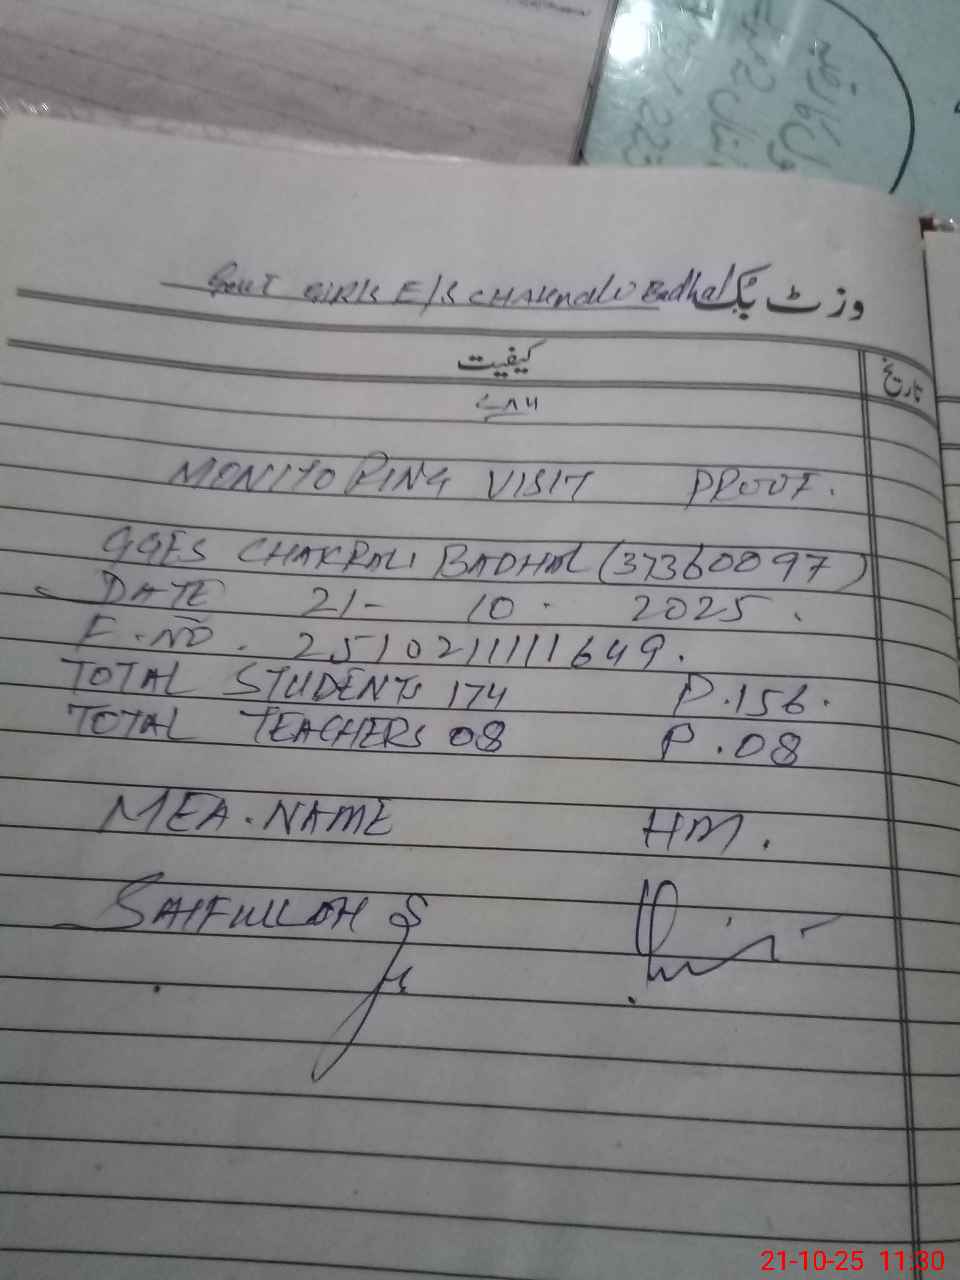 Govt GIRLS E/S CHAKRALI Badhal وزٹ بک
کیفیت
تاریخ
۷۸۶
MONITORING VISIT PROOF.
GGES CHAKRALI BADHAL (37360097)
DATE 21- 10 . 2025 .
E.NO . 25102111111649.
TOTAL STUDENTS 174 P.156.
TOTAL TEACHERS 08 P.08
MEA.NAME HM.
SAIFULLAH
21-10-25 11:30